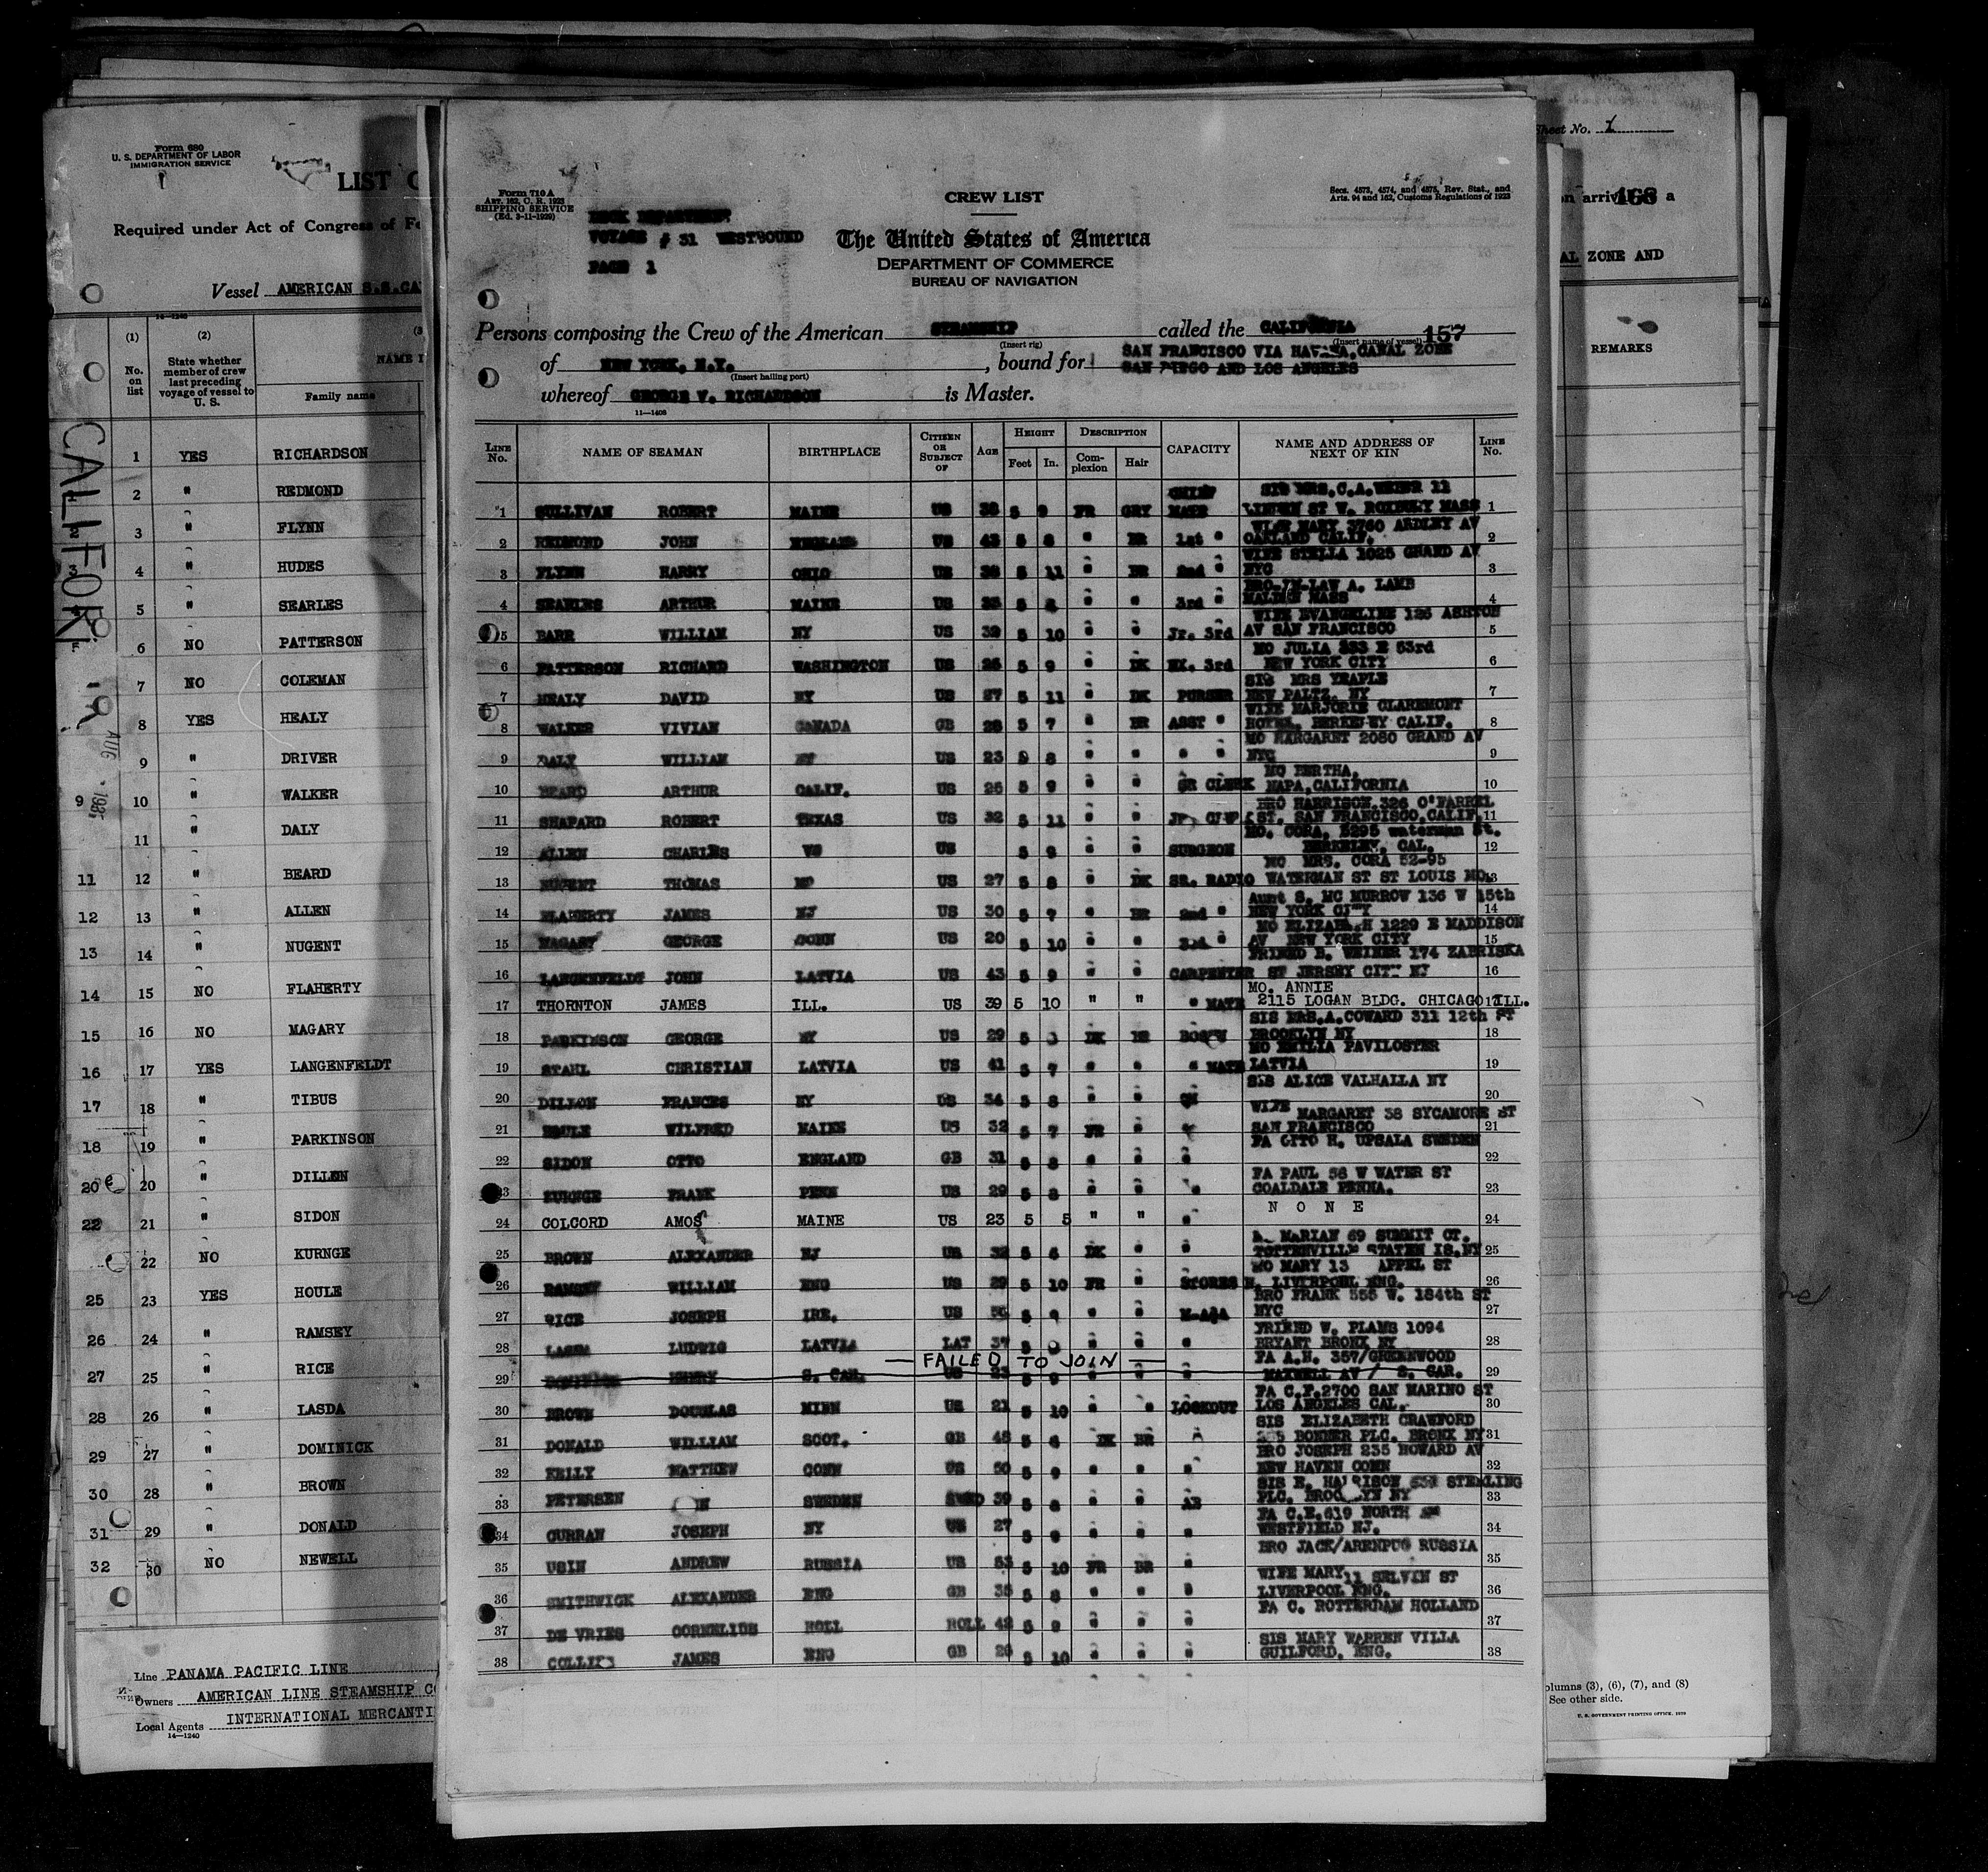 Form 680
U. S. DEPARTMENT OF LABOR
IMMIGRATION SERVICE
LIST
Required under Act of Congress of Fe
Vessel AMERICAN S.S.CA
(1) (2)
No. on list
State whether member of crew last preceding voyage of vessel to U. S.
NAME I
Family name
1 YES RICHARDSON
2 " REDMOND
3 " FLYNN
4 " HUDES
5 " SEARLES
6 NO PATTERSON
7 NO COLEMAN
8 YES HEALY
9 " DRIVER
10 " WALKER
11 " DALY
11 12 " BEARD
12 13 " ALLEN
13 14 " NUGENT
14 15 NO FLAHERTY
15 16 NO MAGARY
16 17 YES LANGENFELDT
17 18 " TIBUS
18 19 " PARKINSON
20 20 " DILLEN
22 21 " SIDON
22 NO KURNGE
25 23 YES HOULE
26 24 " RAMSEY
27 25 " RICE
28 26 " LASDA
29 27 " DOMINICK
30 28 " BROWN
31 29 " DONALD
32 30 NO NEWELL
Line PANAMA PACIFIC LINE
Owners AMERICAN LINE STEAMSHIP CO
Local Agents INTERNATIONAL MERCANTI
14—1240
Form 710 A
Art. 162, C. R. 1923
SHIPPING SERVICE
(Ed. 3-11-1929)
DECK DEPARTMENT
VOYAGE # 31 WESTBOUND
PAGE 1
CREW LIST
Secs. 4573, 4574, and 4575, Rev. Stat., and
Arts. 94 and 162, Customs Regulations of 1923
The United States of America
DEPARTMENT OF COMMERCE
BUREAU OF NAVIGATION
Persons composing the Crew of the American STEAMSHIP called the CALIFORNIA 157
(Insert rig) (Insert name of vessel)
of NEW YORK, N.Y. , bound for SAN FRANCISCO VIA HAVANA, CANAL ZONE
(Insert hailing port) SAN DIEGO AND LOS ANGELES
whereof GEORGE V. RICHARDSON is Master.
11—1408
LINE No. NAME OF SEAMAN BIRTHPLACE CITIZEN OR SUBJECT OF AGE HEIGHT Feet In. DESCRIPTION Complexion Hair CAPACITY NAME AND ADDRESS OF NEXT OF KIN LINE No.
CHIEF SIS MRS.C.A.WEIER 11
1 SULLIVAN ROBERT MAINE US 38 5 9 FR GRY MATE LINDEN ST W. ROXBURY MASS 1
WIFE MARY 3760 ARDLEY AV
2 REDMOND JOHN ENGLAND US 43 5 8 " BR 1st " OAKLAND CALIF. 2
WIFE STELLA 1025 GRAND AV
3 FLYNN HARRY OHIO US 38 5 11 " BR 2nd " NYC 3
BRO-IN-LAW A. LAMB
4 SEARLES ARTHUR MAINE US 33 5 " " 3rd " MALDEN MASS 4
WIFE EVANGELINE 126 ASHTON
5 BARR WILLIAM NY US 39 5 10 " " Jr. 3rd AV SAN FRANCISCO 5
MO JULIA 333 E 53rd
6 PATTERSON RICHARD WASHINGTON US 25 5 9 " DK EX. 3rd NEW YORK CITY 6
SIS MRS YEAPLE
7 HEALY DAVID NY US 27 5 11 " DK PURSER NEW PALTZ, NY 7
WIFE MARJORIE CLAREMONT
8 WALKER VIVIAN CANADA GB 28 5 7 " BR ASST " HOTEL, BERKELEY CALIF. 8
MO MARGARET 2080 GRAND AV
9 DALY WILLIAM NY US 23 5 8 " " " " NYC 9
MO BERTHA,
10 BEARD ARTHUR CALIF. US 25 5 9 " " SR CLERK NAPA, CALIFORNIA 10
BRO HARRISON.326 O'FARREL
11 SHAPARD ROBERT TEXAS US 32 5 11 " " ST. SAN FRANCISCO, CALIF. 11
MO. CORA, 5295 waterman St.
12 ALLEN CHARLES US 5 9 " " SURGEON BERKELEY, CAL. 12
MO MRS. CORA 52-95
13 NUGENT THOMAS MO US 27 5 8 " DK SR. RADIO WATERMAN ST ST LOUIS MO. 13
Aunt S. MC MURROW 136 W 15th
14 FLAHERTY JAMES NJ US 30 5 7 " BR 2nd " NEW YORK CITY 14
MO ELIZABETH 1229 E MADDISON
15 MAGARY GEORGE CONN US 20 5 10 " " 3rd " AV NEW YORK CITY 15
FRIEND E. WEINER 174 ZABRISKA
16 LANGENFELDT JOHN LATVIA US 43 5 9 " " CARPENTER ST JERSEY CITY NJ 16
MO. ANNIE
17 THORNTON JAMES ILL. US 39 5 10 " " " MATE 2115 LOGAN BLDG. CHICAGO ILL. 17
SIS MRS.A.COWARD 311 12th ST
18 PARKINSON GEORGE NY US 29 5 DK BR BOS'N BROOKLYN NY 18
MO EMILIA PAVILOSTER
19 STAHL CHRISTIAN LATVIA US 41 5 7 " " " MATE LATVIA 19
SIS ALICE VALHALLA NY
20 DILLON FRANCES NY US 34 5 8 " " QM 20
WIFE MARGARET 38 SYCAMORE ST
21 HOULE WILFRED MAINE US 32 5 7 FR " " SAN FRANCISCO 21
FA OTTO H. UPSALA SWEDEN
22 SIDON OTTO ENGLAND GB 31 5 8 " " " 22
FA PAUL 56 W WATER ST
23 KURNGE FRANK PENN US 29 5 8 " " " COALDALE PENNA. 23
N O N E
24 COLCORD AMOS MAINE US 23 5 5 " " " 24
MARIAN 69 SUMMIT CT.
25 BROWN ALEXANDER NJ US 32 5 6 DK " " TOTTENVILLE STATEN IS.NY 25
MO MARY 13 APPEL ST
26 RAMSEY WILLIAM ENG US 29 5 10 FR " STORES N. LIVERPOOL ENG. 26
BRO FRANK 555 W. 184th ST
27 RICE JOSEPH IRE. US 50 5 9 " " M-A@A NYC 27
FRIEND W. PLAMS 1094
28 LASDA LUDWIG LATVIA LAT 37 5 " " " BRYANT BRONX NY 28
— FAILED TO JOIN —
FA A.H. 357/GREENWOOD
29 DOMINICK HENRY S. CAR. US 23 5 9 " " " MAXWELL AV / S. CAR. 29
FA C.F.2700 SAN MARINO ST
30 BROWN DOUGLAS MINN US 21 5 10 " " LOOKOUT LOS ANGELES CAL. 30
SIS ELIZABETH CRAWFORD
31 DONALD WILLIAM SCOT. GB 45 5 6 DK BR " BONNER PLC. BRONX NY 31
BRO JOSEPH 235 HOWARD AV
32 KELLY MATTHEW CONN US 50 5 9 " " " NEW HAVEN CONN 32
SIS E. HARRISON STERLING
33 PETERSEN SWEDEN SWED 39 5 8 " " AB PLC. BROOKLYN NY 33
FA C.E.619 NORTH
34 CURRAN JOSEPH NY US 27 5 9 " " " WESTFIELD NJ. 34
BRO JACK/ARENPUG RUSSIA
35 USIN ANDREW RUSSIA US 53 5 10 FR BR " 35
WIFE MARY 11 SELVIN ST
36 SMITHWICK ALEXANDER ENG GB 35 5 8 " " " LIVERPOOL ENG. 36
FA C. ROTTERDAM HOLLAND
37 DE VRIES CORNELIUS HOLL HOLL 42 5 9 " " " 37
SIS MARY WARREN VILLA
38 COLLINS JAMES ENG GB 26 5 10 " " " GUILFORD, ENG. 38
Sheet No. 1
on arrival a
168
AL ZONE AND
REMARKS
olumns (3), (6), (7), and (8)
See other side.
U. S. GOVERNMENT PRINTING OFFICE
CALIFORNI
AUG